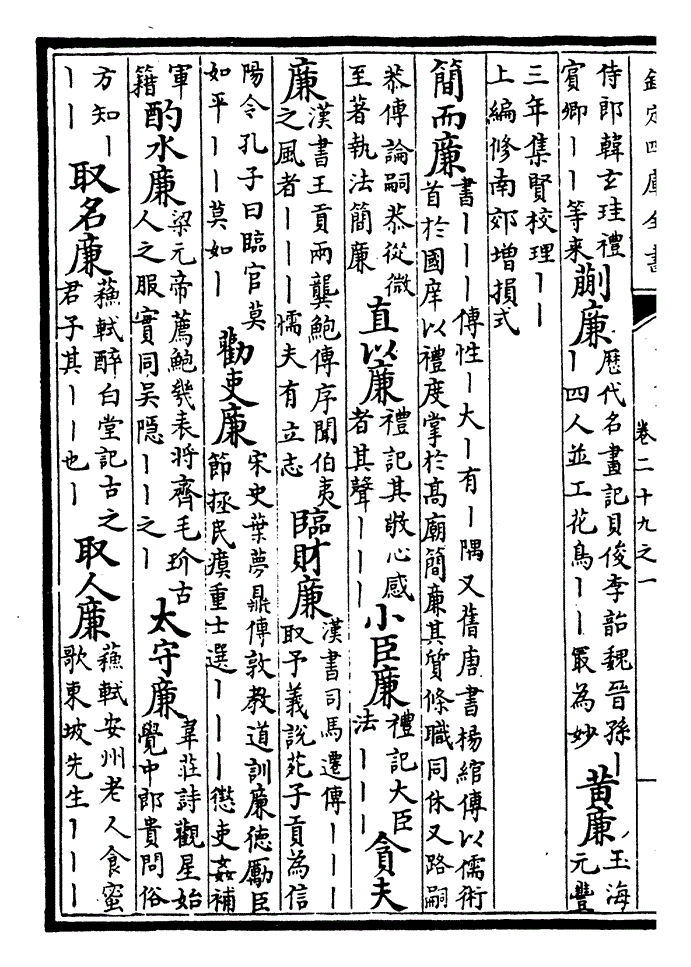 欽定四庫全書
卷二十九之一
侍郎韓玄珪禮
賓卿｜｜等来
蒯廉
歷代名畫記貝俊李韶魏晉孫｜
｜四人並工花鳥｜｜最為妙
黃廉
玉海
元豐
三年集賢校理｜｜
上編修南郊增損式
簡而廉
書｜｜｜傳性｜大｜有｜隅又舊唐書楊綰傳以儒術
首於國庠以禮度掌於高廟簡廉其質條職同休又路嗣
恭傳論嗣恭從微
至著執法簡廉
直以廉
禮記其敬心感
者其聲｜｜｜
小臣廉
禮記大臣
法｜｜｜
貪夫
廉
漢書王貢兩龔鮑傳序聞伯夷
之風者｜｜｜懦夫有立志
臨財廉
漢書司馬遷傳｜｜｜
取予義說苑子貢為信
陽令孔子曰臨官莫
如平｜｜莫如｜
勸吏廉
宋史葉夢鼎傳敦教道訓廉德勵臣
節拯民瘼重士選｜｜｜懲吏姦補
軍
籍
酌水廉
梁元帝薦鮑幾表將齊毛玠古
人之服實同吳隱｜｜之｜
太守廉
韋莊詩觀星始
覺中郎貴問俗
方知｜
｜｜
取名廉
蘇軾醉白堂記古之
君子其｜｜也｜
取人廉
蘇軾安州老人食蜜
歌東坡先生｜｜｜